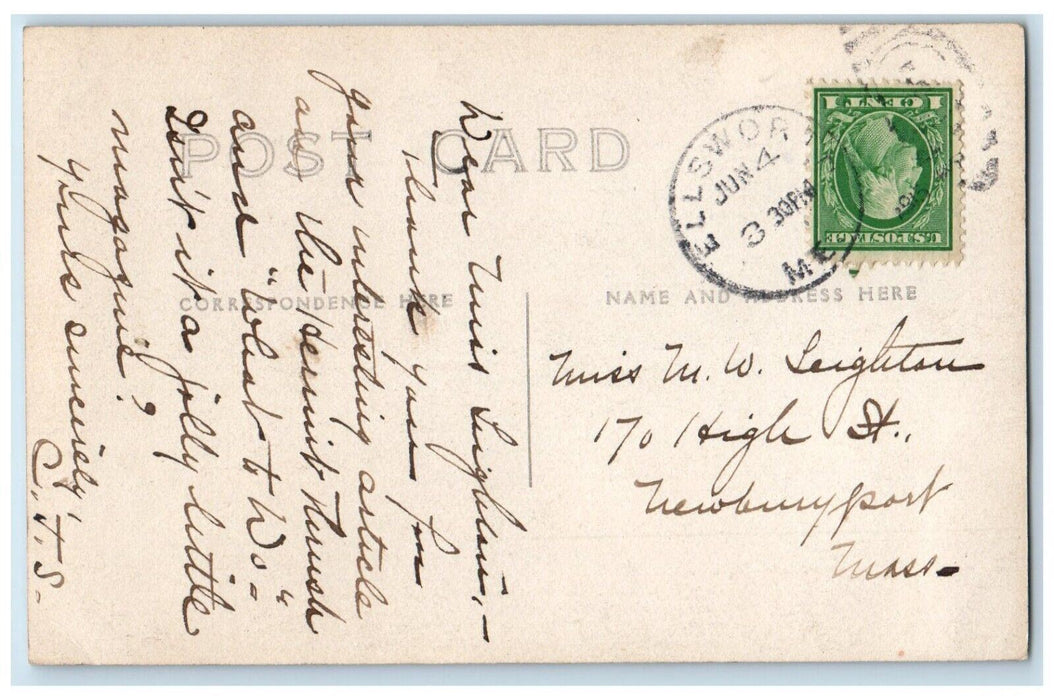 POST CARD
CORRESPONDENCE HERE
NAME AND ADDRESS HERE
Dear Miss Leighton,—
Thank you for
your interesting article
on the Hermit Thrush
and "What to Do—"
Don't it a jolly little
magazine?
Yours sincerely,
C. J. S—
ELLSWORTH
JUN 4
3 30PM
ME
U.S. POSTAGE
1 CENT 1
Miss M. W. Leighton
170 High St.,
Newburyport
Mass—